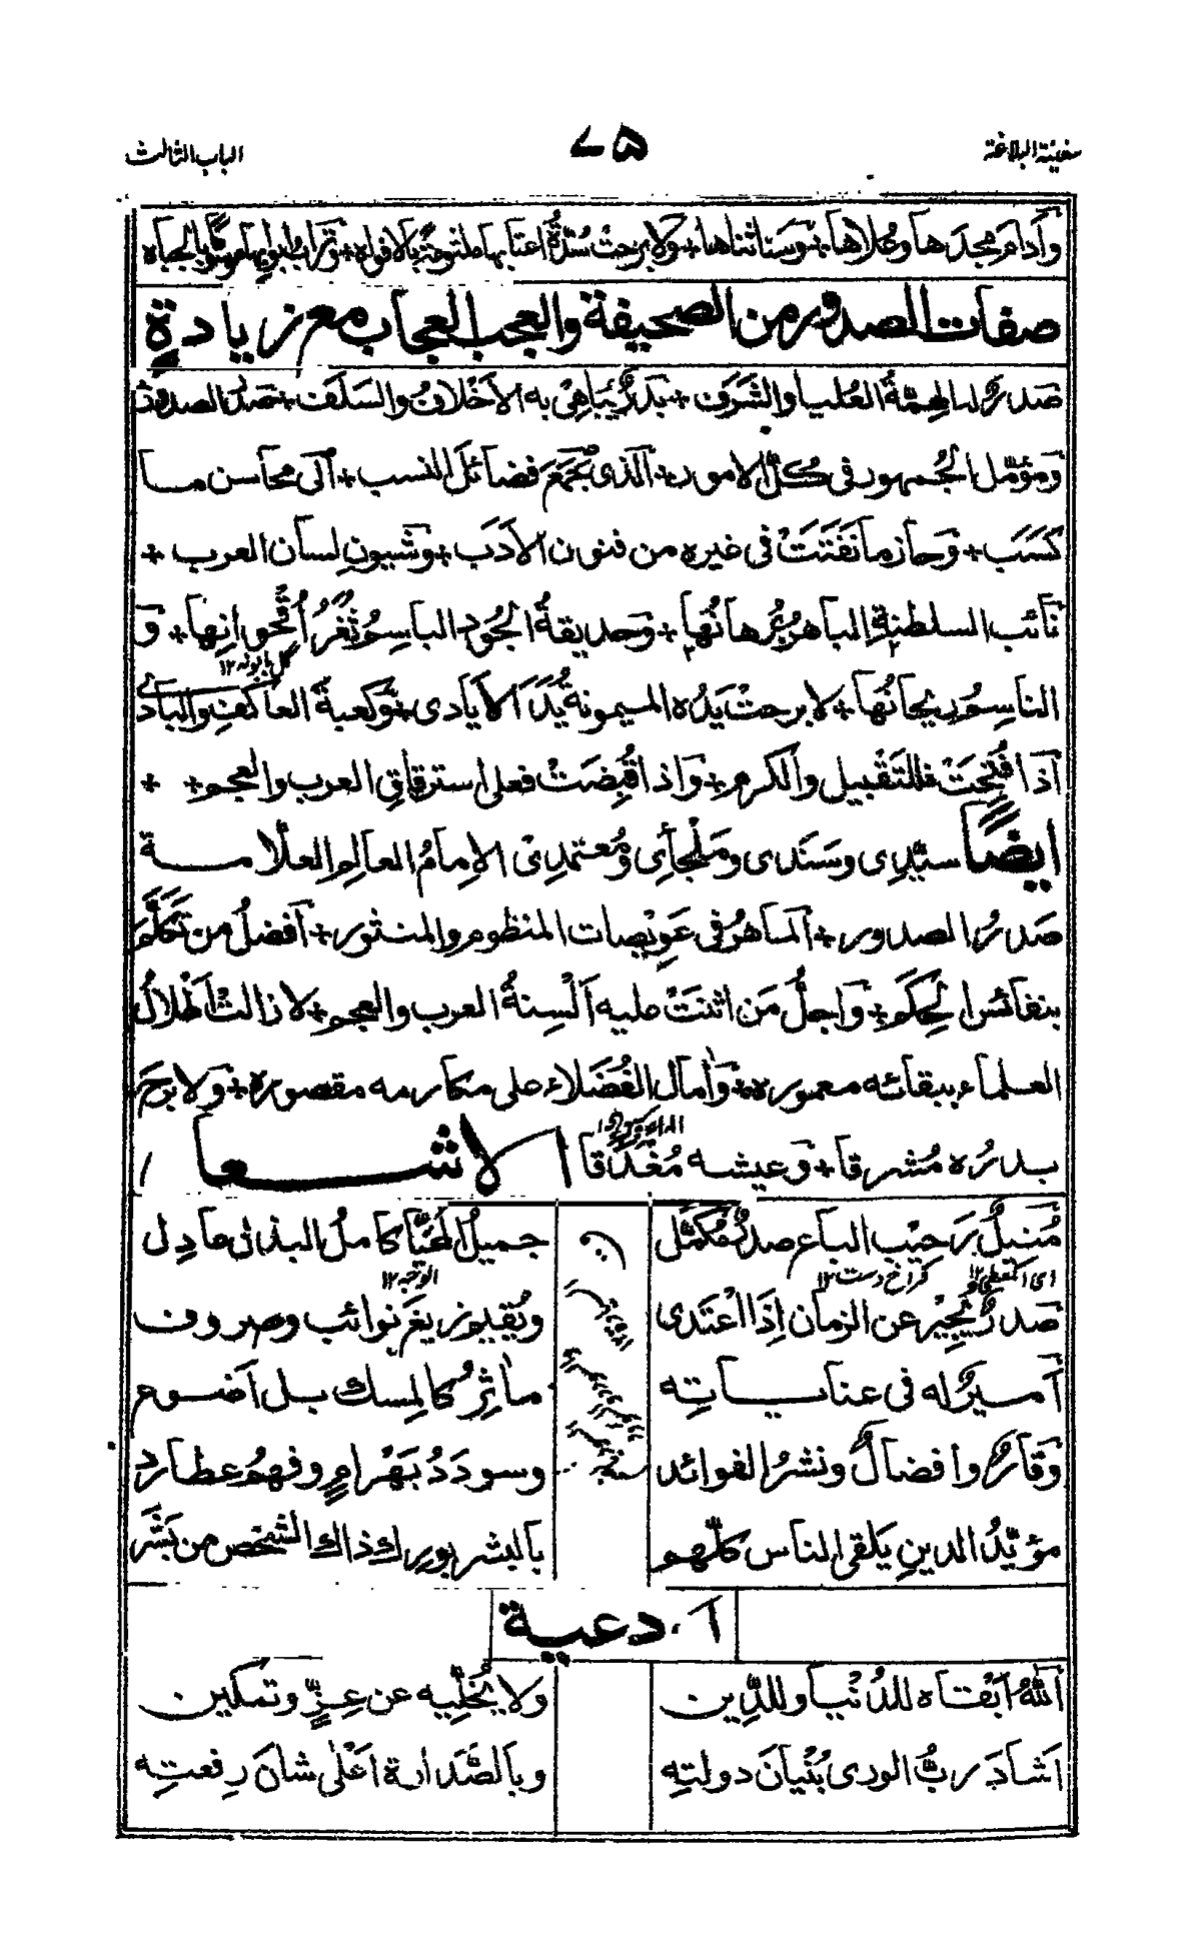 سفينة البلاغة ٧٥ الباب الثالث
وَأَدام مجدَها وعُلاها + وسَناثناها + وَلا برحت سُدَّةُ اعتابها ملثومة بالافواه + وتراب ابوابها موسوما بالجباه
صفات الصدور من الصحيفة والعجب العجاب مع زيادة
صَدرٌ له الهِمَّةُ العُليا والشَرَف + بَدرٌ يُباهِيْ به الأخلافُ والسَلَف + صَدرُ الصدور
وَمُؤَمَّل الجُمهور فى كُلِّ الامور + اَلذى جَمَعَ فضائلَ النسب + اَلى محاسن ما
كَسَبَ + وَحاز ما تفَتَتَ فى غيره من فنون الأدَب + وَشيونِ لسان العرب +
نَائب السلطنةِ الباهرِ بُرهانُها + وَحديقةُ الجُود الباسمِ ثُغرُ اُقحوانِها + وَ
گل بابونه ١٢
الناسمِ ريحانُها + لا برحتْ يَدُه الميمونةُ يَدَ الأيادى + وَكعبةَ العاكفِ والبادى
اَذا فُتِحَتْ فللتَقبيل والكرم + وَاذا قُبِضَتْ فعلى استرقاقِ العرب والعجم + +
ايضًا سيّدِى وسَنَدى ومَلْجأىِ ومُعتمدِىْ الاِمامُ العالِم العلّامة
صَدرُ الصدور + اَلماهرُ فى عَوِيْصات المنظوم والمنثور + اَفضلُ من تَكلَّمَ
بنفائس الحِكَم + وَاَجلُّ مَن اثنَتْ عليه اَلْسِنةُ العرب والعجم + لا زالتْ اَظلالُ
العلماء ببقائه معموره + وَاٰمال الفُضَلاء على مكارمه مقصوره + وَلا برحَ
بدرُه مُشرقا + وَعيشه مُغْدَقا الاشعار
مُنِيلٌ رَحِيْبِ الباع صدرٌ مُكَمَّل جميلُ المُحَيَّا كاملُ البذلِ عادِل
اى المعطى ١٢ فراخ دست ١٢ الوجه ١٢
صَدرٌ يُجِيرُ عن الزمان اِذَا اعْتَدى
أميرٌ له فى عناياتِه ماٰثِرُ كالمِسك بل اَضوع
وَقارٌ وافضالٌ ونشرُ الفوائد وسودَدُ بَهْرامٍ وفهمُ عطارد
مؤيّدُ الدينِ يَلقى الناس كلّهم بالبشر بورك ذاك الشخص من بَشَر
اَدعية
اَللهُ اَبْقاه للدُنْيا وللدِّين ولا يُخَلِّيه عن عِزٍّ وتمكين
اَشادَ ربُّ الورى بُنْيانَ دولتِه وبالصَّدارة اَعْلى شان رِفعتِه